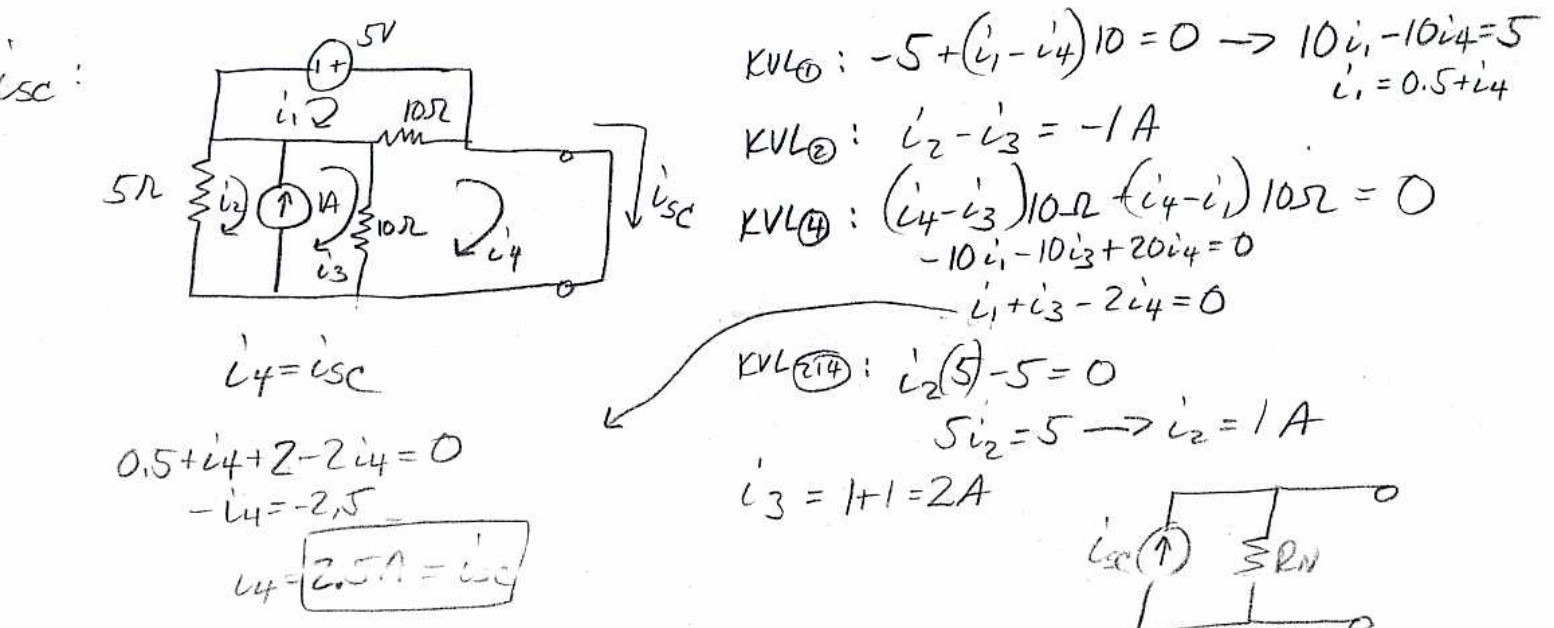 isc :
5V
- +
i1
10Ω
5Ω
i2
1A
i3
10Ω
i4
isc
i4 = isc
0.5+i4+2-2i4=0
-i4=-2,5
i4=2.5A = isc
KVL①: -5+(i1-i4)10=0 → 10i1-10i4=5
i1=0.5+i4
KVL②: i2-i3=-1A
KVL④: (i4-i3)10Ω+(i4-i1)10Ω=0
-10i1-10i3+20i4=0
i1+i3-2i4=0
KVL: i2(5)-5=0
5i2=5 → i2=1A
i3=1+1=2A
isc
RN